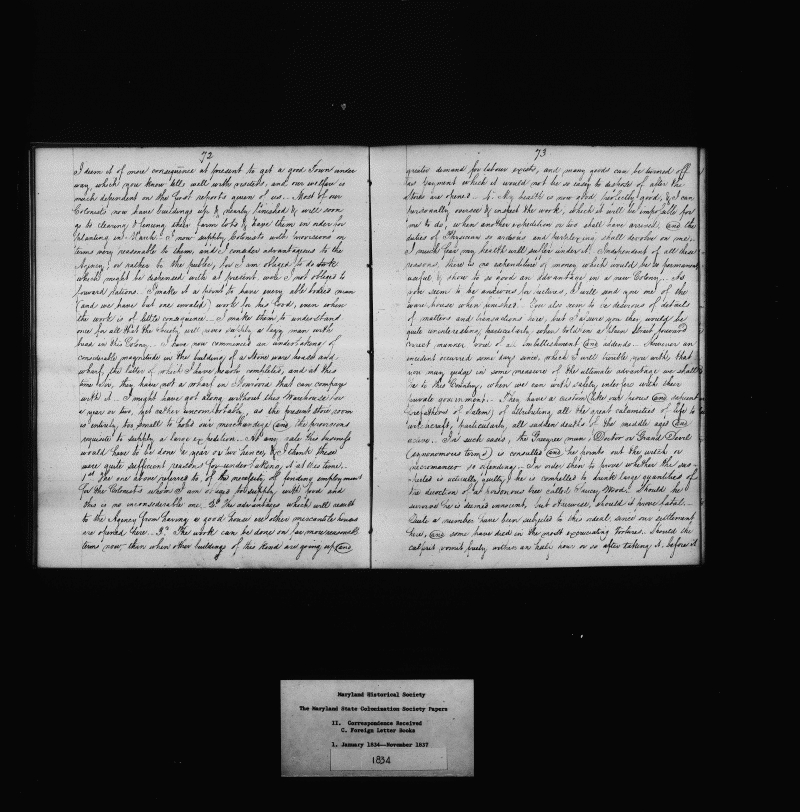 72
I deem it of more consequence at present to get a good Town under
way, which you know tells well with visitors, and our welfare is
much dependent on the first reports given of us. Most of our
Colonists now have buildings up & nearly finished & will soon
go to clearing & fencing their farm lots & have them in order for
planting in March. I now supply Colonists with provisions on
terms very reasonable to them, and I consider advantageous to the
Agency, or rather to the public, for I am obliged to do work
which might be dispensed with at present were I not obliged to
forward rations. I make it a point to have every able bodied man
(and we have but one invalid) work for his food, even when
the work is of little consequence. I make them to understand
once for all that the Society will never supply a lazy man with
bread in this Colony. I have now commenced an undertaking of
considerable magnitude in the building of a stone ware house and
wharf, the latter of which I have nearly completed, and at this
time too, they have not a wharf in Monrovia that can compare
with it. I might have got along without this Warehouse for
a year or two, yet rather uncomfortably, as the present store room
is entirely too small to hold our merchandize and the provisions
requisite to supply a large expedition. At any rate this business
would have to be done a year or two hence, & I think these
were quite sufficient reasons for undertaking it at this time.
1st The one above referred to, of the necessity of finding employment
for the Colonists whom I am obliged to supply with food and
this is no inconsiderable one. 2d The advantages which will result
to the Agency from having a good house ere other mercantile houses
are opened here. 3d The work can be done on far more reasonable
terms now than when other buildings of this kind are going up and
73
greater demand for labour exists, and many goods can be turned off
as payment which it would not be so easy to dispose of after the
stores are opened. 4. My health is now good, perfectly good, & I can
personally oversee & inspect the work, which it will be impossible for
me to do, when another expedition or two shall have arrived and the
duties of Physician so arduous and harassing shall devolve on me.
I much fear my health will suffer under it. Independent of all these
reasons there is no expenditure of money which would be so permanently
useful & show to so good an advantage in a new Colony. As
you seem to be anxious for pictures, I will send you one of the
ware house when finished. You also seem to be desirous of details
of matters and transactions here, but I assure you they would be
quite uninteresting, particularly when told in a plain straight forward
correct manner void of all embellishment and addenda. However an
incident occurred some days since, which I will trouble you with, that
you may judge in some measure of the ultimate advantage we shall
be to this Country, when we can with safety interfere with their
private government. They have a custom
of attributing all the great calamities of life to
witchcraft, particularly all sudden deaths of the middle aged and
active. In such cases, the Greegree man, Doctor or Grand Devil
(synonymous terms) is consulted and he points out the witch or
necromancer so offending. In order then to prove whether the sus-
pected is actually guilty, he is compelled to drink large quantities of
the decoction of a poisonous tree called Saucy Wood. Should he
survive he is deemed innocent, but otherwise, should it prove fatal.
Quite a number have been subjected to this ordeal since our settlement
here, and some have died in the most excruciating tortures. Should the
culprit vomit freely within an half hour or so after taking it, before it
Maryland Historical Society
The Maryland State Colonization Society Papers
II. Correspondence Received
C. Foreign Letter Books
1. January 1834--November 1837
1834